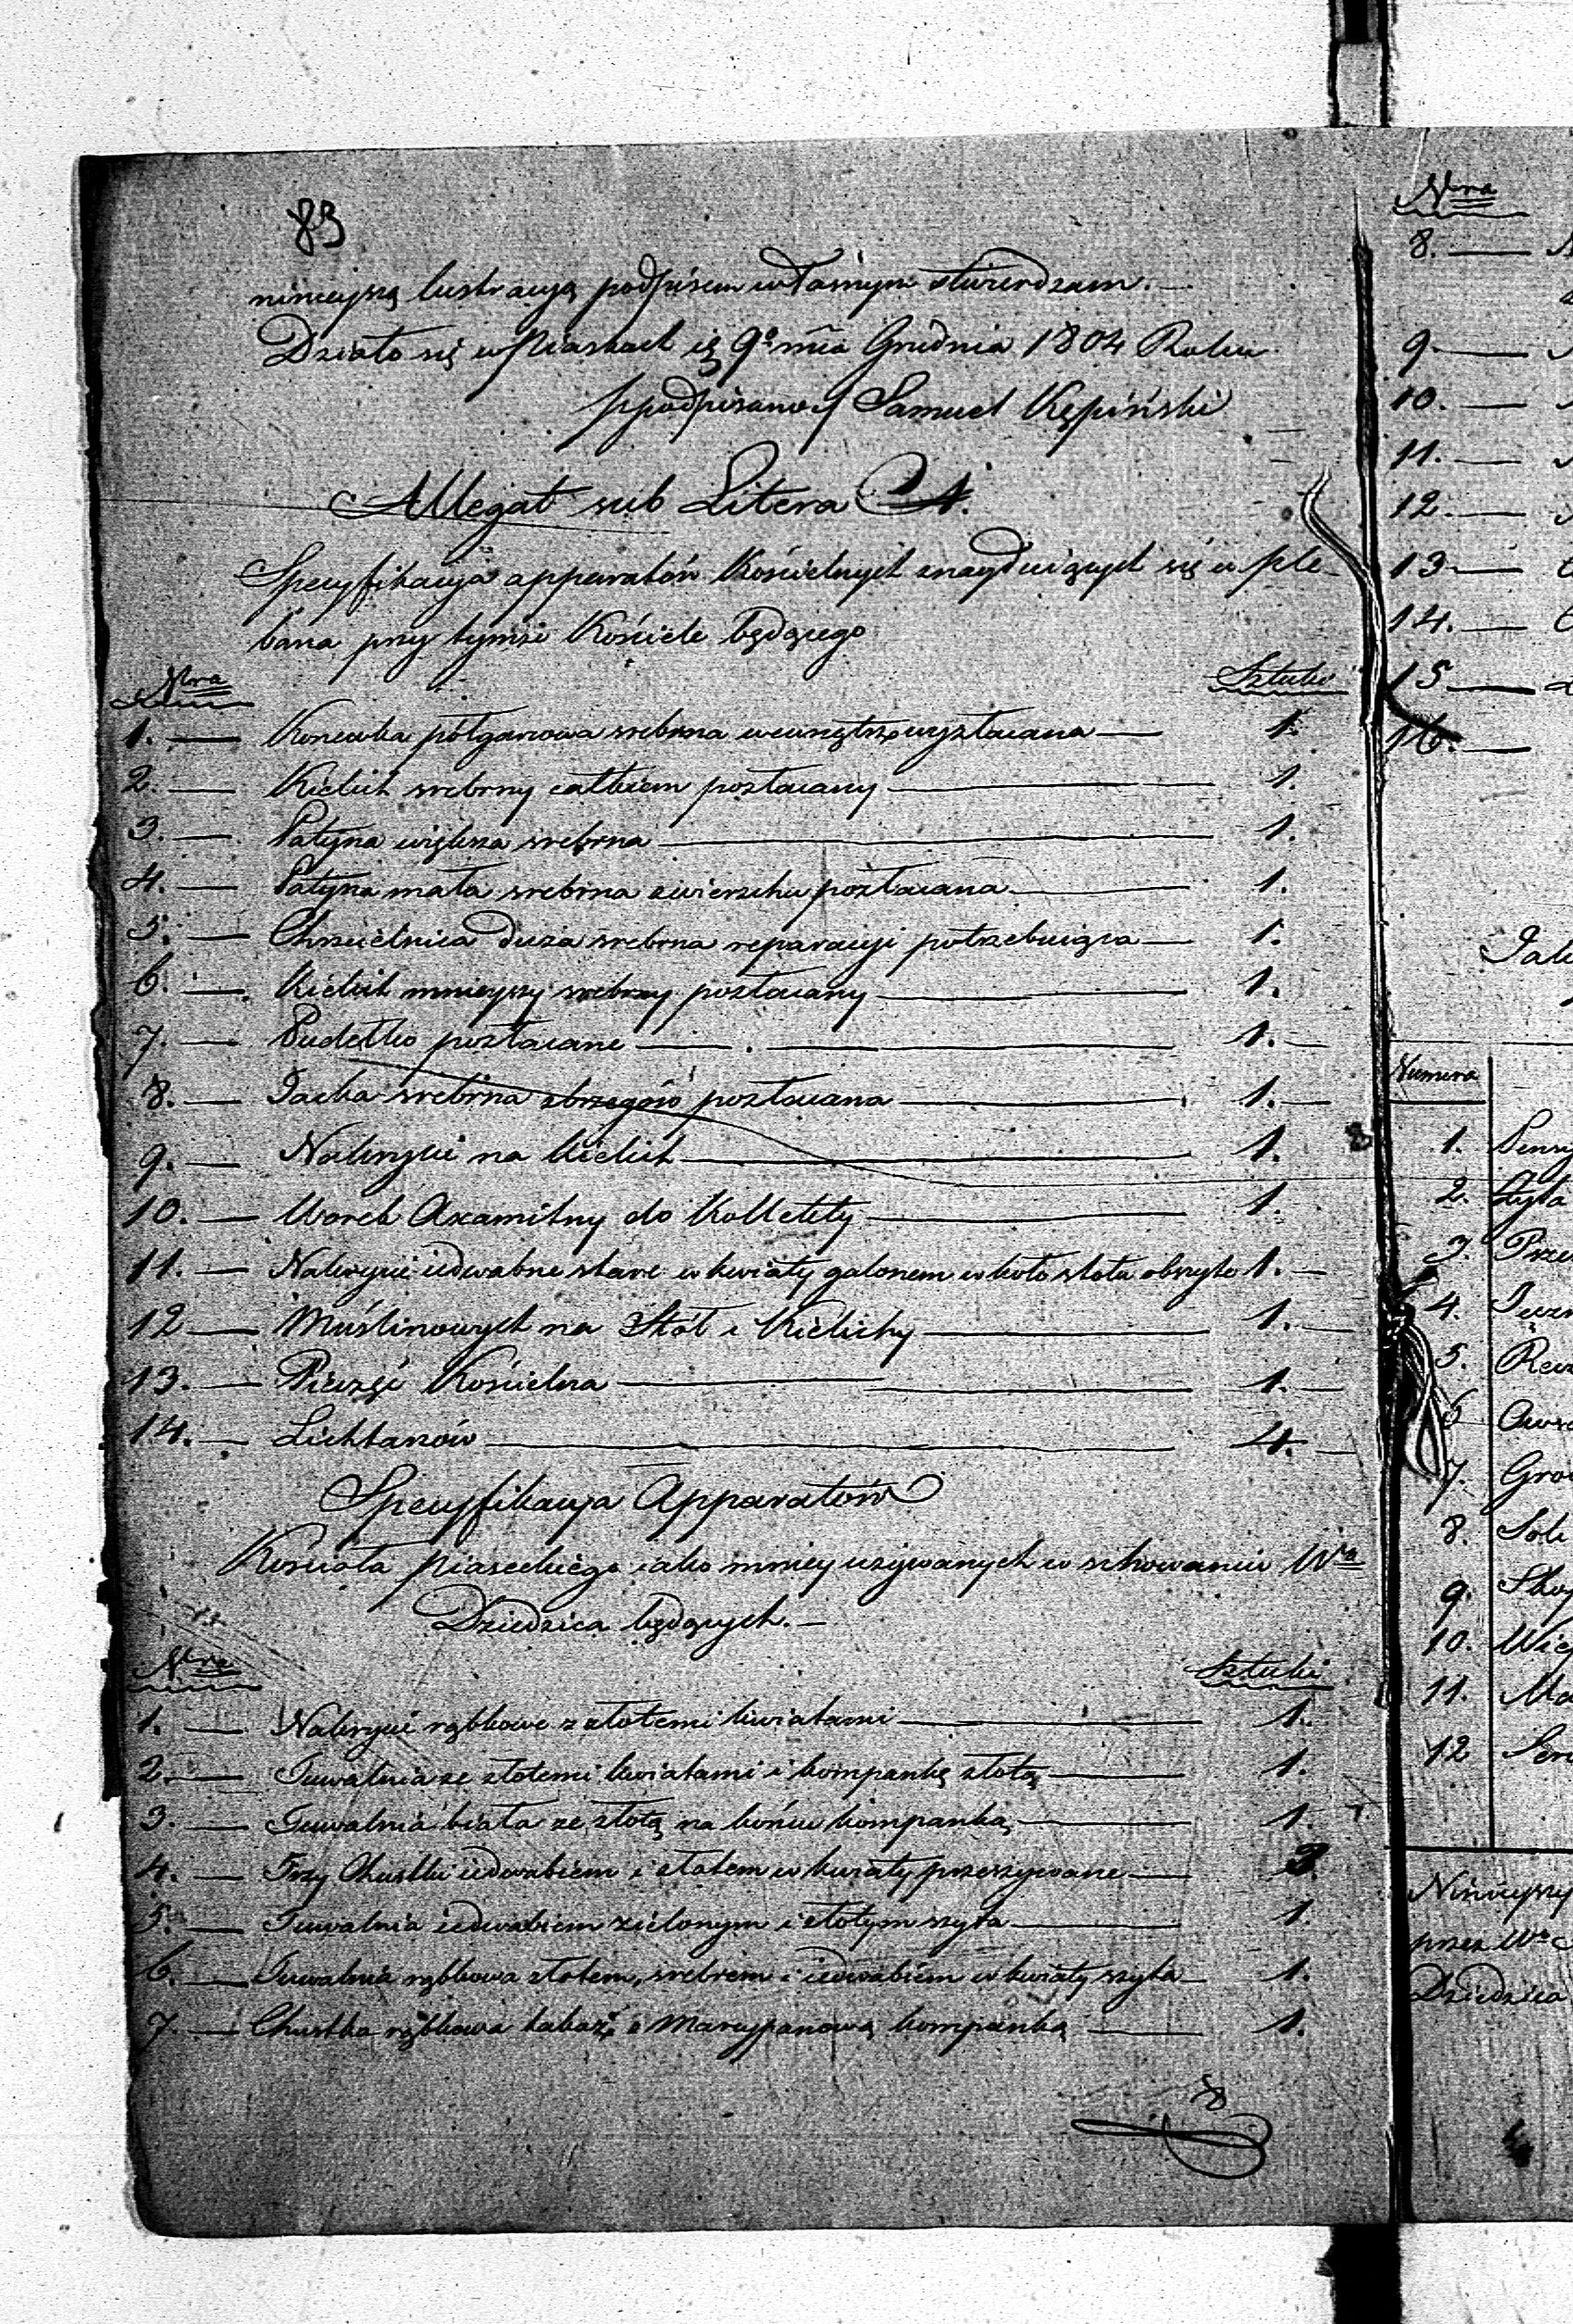 83
ninieyszą lustracyą podpisem własnym stwierdzam.
Działo się w Piaskach
9º mca Grudnia 1804 Roku
podpisano Samuel Kępiński
Allegat sub Litera A.
Specyfikacya apparatów Kościelnych znayduiących się u ple-
bana przy tymże Kościele będącego
Nra Sztuki
1. — Konewka półgarcowa srebrna wewnątrz wyzłacana — 1.
2. — Kielich srebrny całkiem pozłacany — 1.
3. — Patyna większa srebrna — 1.
4. — Patyna mała srebrna zwierzchu pozłacana — 1.
5. — Chrzcielnica duża srebrna reparacyi potrzebuiąca — 1.
6. — Kielich mnieyszy srebrny pozłacany — 1.
7. — Pudełko pozłacane — 1.
8. — Tacka srebrna zbrzegów pozłacana — 1.
9. — Nakrycie na kielich — 1.
10. — Worek Axamitny do Kollekty — 1.
11. — Nakrycie iedwabne stare w kwiaty galonem w koło stołu obszyte 1.
12 — Muślinowych na Stół i Kielichy — 1.
13. — Pieczęć Kościelna — 1.
14. — Lichtarzów — 4.
Specyfikacya Apparatów
Kościoła Piaseckiego iako mniey używanych w schowaniu Wo
Dziedzica będących. —
Nra Sztuki
1. — Nakrycie rąbkowe z złotemi kwiatami — 1.
2. — Tuwalnia ze złotemi kwiatami i kompanką złotą — 1.
3. — Tuwalnia biała ze złotą na końcu kompanką — 1.
4. — Trzy Chustki iedwabiem i złotem w kwiaty przeszywane — 3.
5. — Tuwalnia iedwabiem zielonym i złotym szyta — 1.
6. — Tuwalnia rąbkowa złotem, srebrem i iedwabiem w kwiaty szyta — 1.
7. — Chustka rąbkowa
Marcypanową kompanką — 1.
8
Nra
8. —
9. —
10. —
11. —
12. —
13 —
14. —
15 —
16. —
Numera
1.
2.
3.
4.
5.
6
7.
8.
9.
10.
11.
12
Dziedzica